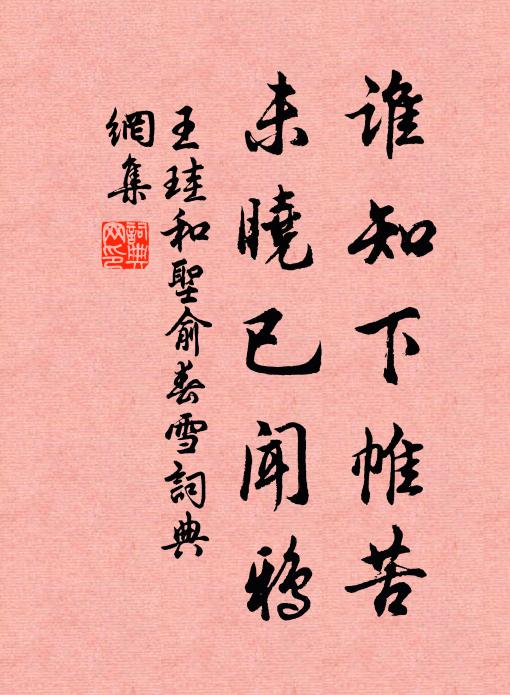 谁知下帷苦
未曉已闻鸦
王珪和聖俞春雪詞典
網集
詞典
网印